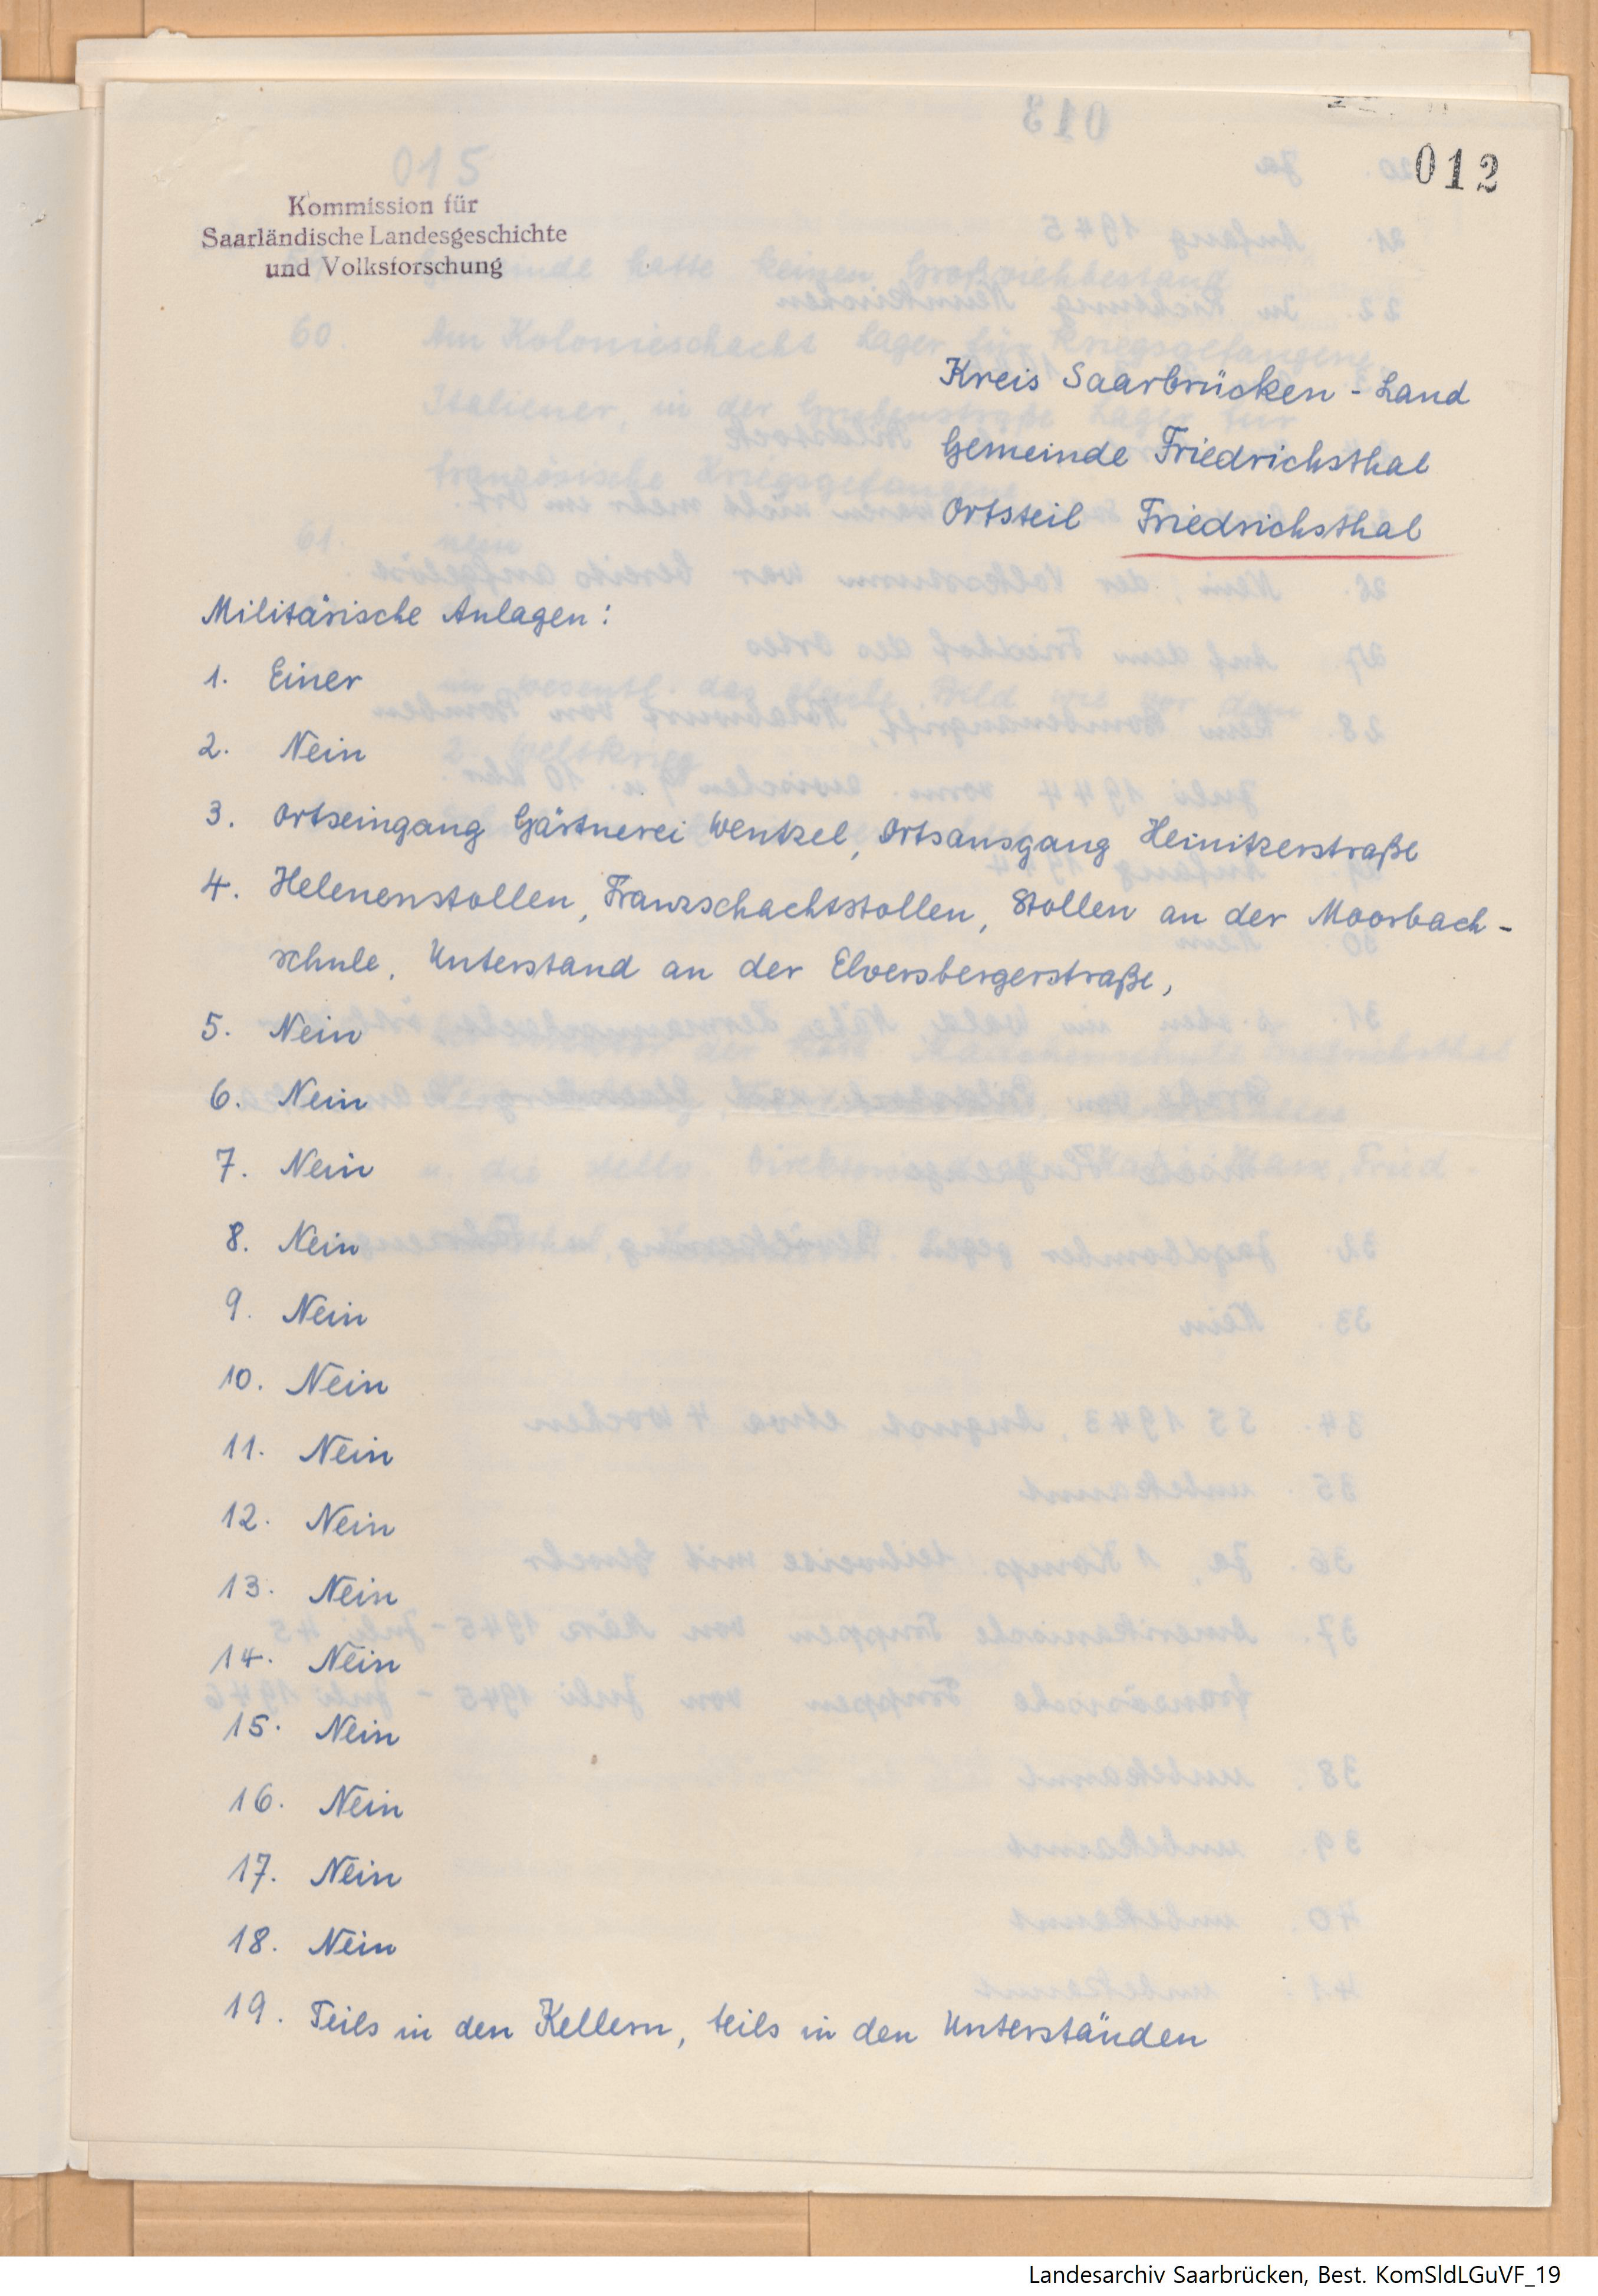 012
Kommission für
Saarländische Landesgeschichte
und Volksforschung
Kreis Saarbrücken - Land
Gemeinde Friedrichsthal
Ortsteil Friedrichsthal
Militärische Anlagen:
1. Einer
2. Nein
3. Ortseingang Gärtnerei Wentzel, Ortsausgang Heinitzerstraße
4. Helenenstollen, Franzschachtstollen, Stollen an der Moorbach-
schule, Unterstand an der Elversbergerstraße,
5. Nein
6. Nein
7. Nein
8. Nein
9. Nein
10. Nein
11. Nein
12. Nein
13. Nein
14. Nein
15. Nein
16. Nein
17. Nein
18. Nein
19. Teils in den Kellern, teils in den Unterständen
Landesarchiv Saarbrücken, Best. KomSldLGuVF_19